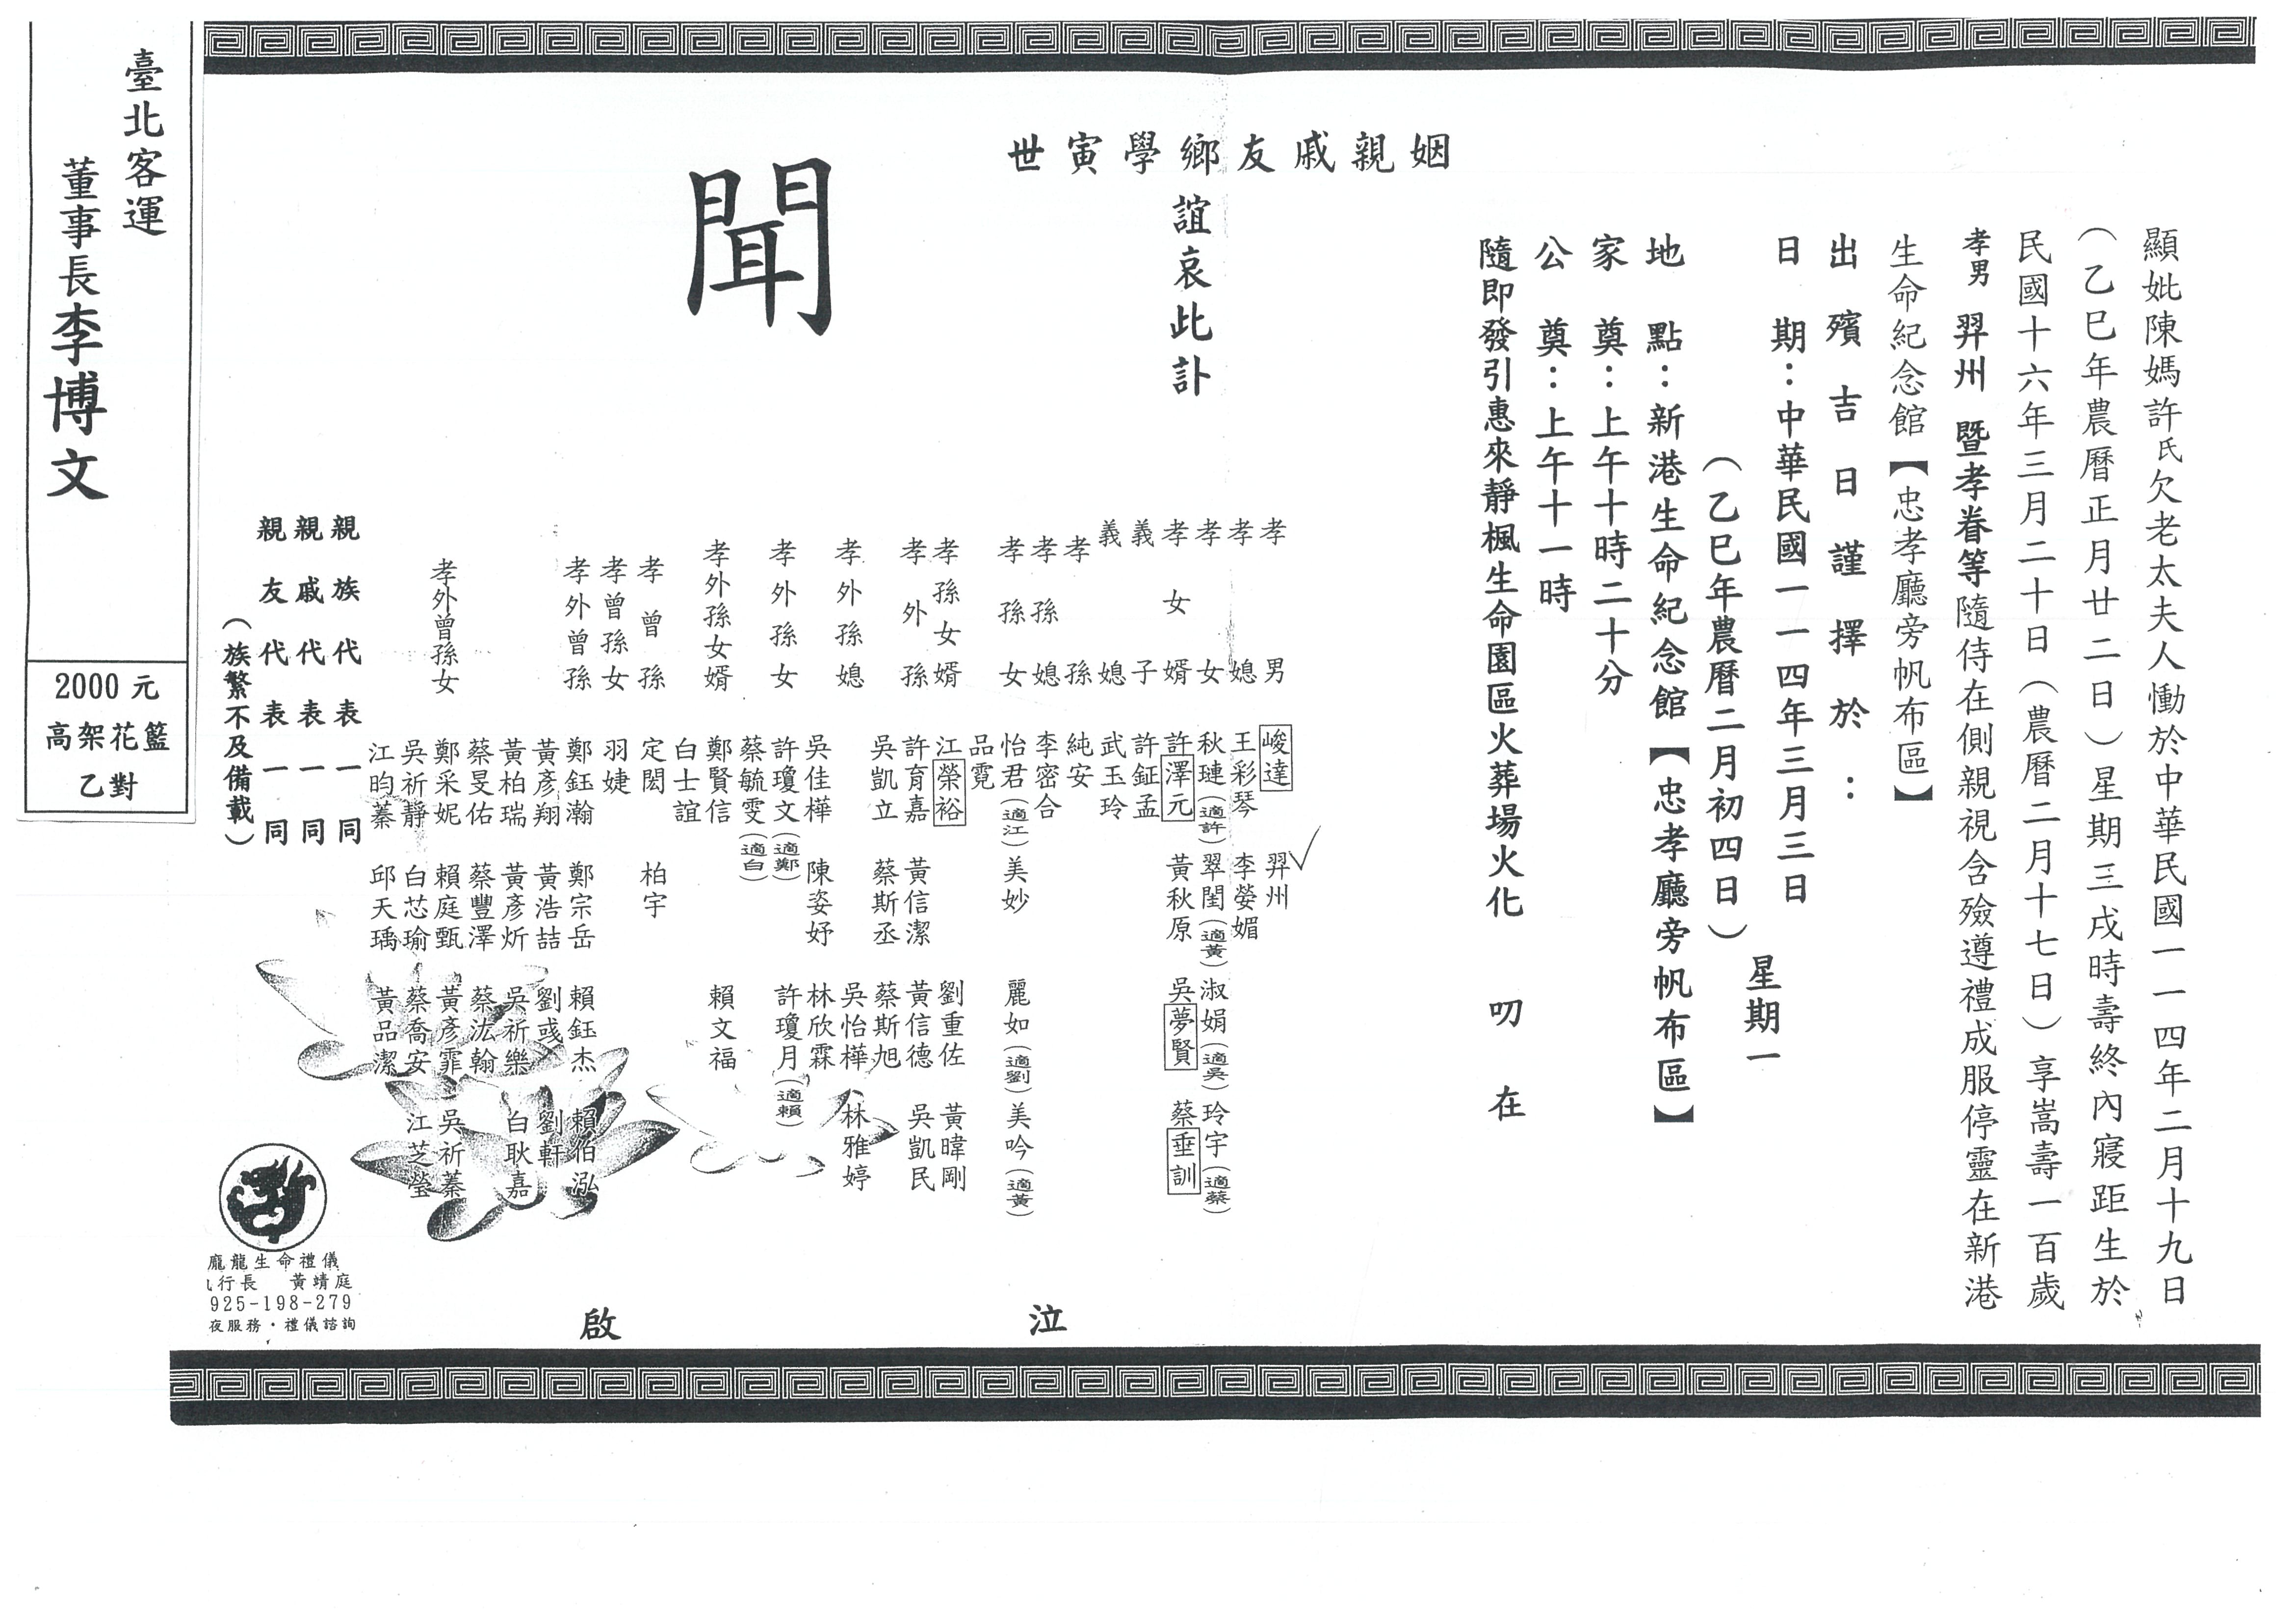 顯妣陳媽許氏欠老太夫人慟於中華民國一一四年二月十九日
（乙巳年農曆正月廿二日）星期三戌時壽終內寢距生於
民國十六年三月二十日（農曆二月十七日）享嵩壽一百歲
孝男 羿州 暨孝眷等隨侍在側親視含殮遵禮成服停靈在新港
生命紀念館【忠孝廳旁帆布區】
出殯吉日謹擇於：
日期：中華民國一一四年三月三日 星期一
（乙巳年農曆二月初四日）
地點：新港生命紀念館【忠孝廳旁帆布區】
家奠：上午十時二十分
公奠：上午十一時
隨即發引惠來靜楓生命園區火葬場火化 叨在
姻親戚友鄉學寅世
誼哀此訃
聞
孝男 峻達 羿州
孝媳 王彩琴 李嫈媚
孝女 秋璉（適許） 翠閏（適黃） 淑娟（適吳） 玲宇（適蔡）
孝女婿 許澤元 黃秋原 吳夢賢 蔡垂訓
義子 許鉦孟
義媳 武玉玲
孝孫 純安
孝孫媳 李密合
孝孫女 怡君（適江） 美妙 麗如（適劉） 美吟（適黃）
品霓
孝孫女婿 江榮裕 劉重佐 黃暐剛
孝外孫 許育嘉 黃信潔 黃信德 吳凱民
吳凱立 蔡斯丞 蔡斯旭
孝外孫媳 吳怡樺 林雅婷
吳佳樺 陳姿妤 林欣霖
孝外孫女 許瓊文（適鄭） 許瓊月（適賴）
蔡毓雯（適白）
孝外孫女婿 鄭賢信 賴文福
白士誼
孝曾孫 定閎 柏宇
孝曾孫女 羽婕
孝外曾孫 鄭鈺瀚 鄭宗岳 賴鈺杰 賴伯泓
黃彥翔 黃浩喆 劉彧 劉軒
黃柏瑞 黃彥炘 吳祈樂 白耿嘉
蔡旻佑 蔡豐澤 蔡汯翰
孝外曾孫女 鄭采妮 賴庭甄 黃彥霏 吳祈蓁
吳祈靜 白芯瑜 蔡喬安 江芝瑩
江昀蓁 邱天瑀 黃品潔
親族代表一同
親戚代表一同
親友代表一同
（族繁不及備載）
泣 啟
龐龍生命禮儀
行長 黃靖庭
925-198-279
夜服務・禮儀諮詢
臺北客運
董事長李博文
2000元
高架花籃
乙對